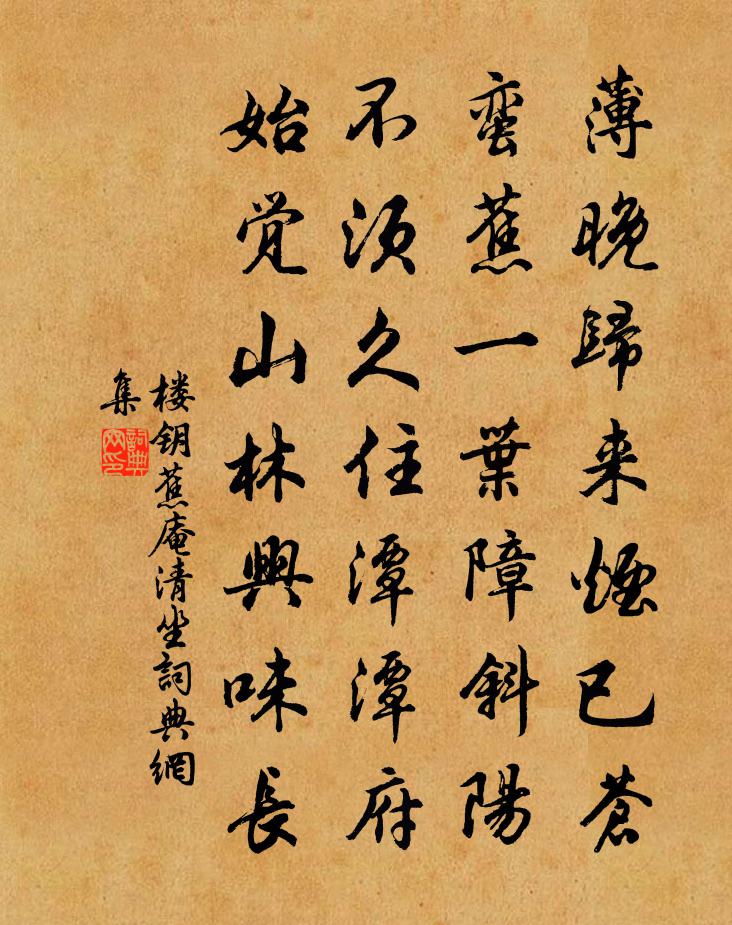 薄晚歸来煙已苍
蛮蕉一葉障斜陽
不须久住潭潭府
始覚山林興味長
楼钥蕉庵清坐詞典網
集
詞典
网印